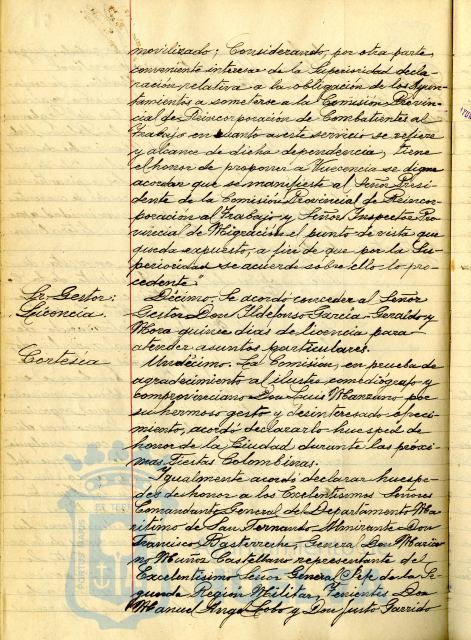 movilizado; Considerando, por otra parte,
conveniente interesar de la Superioridad decla-
ración relativa a la obligación de los Ayun-
tamientos a someterse a la Comisión Provin-
cial de Reincorporación de Combatientes al
trabajo en cuanto a este servicio se refiere
y alcance de dicha dependencia, tiene
el honor de proponer a Vuecencia se digne
acordar que se manifieste al Señor Presi-
dente de la Comisión Provincial de Reincor-
poración al Trabajo y Señor Inspector Pro-
vincial de Migración el punto de vista que
queda expuesto, a fin de que por la Su-
perioridad se acuerde sobre ello lo pro-
cedente.
Sr. Gestor:
Licencia.
Décimo. Se acordó conceder al Señor
Gestor Don Ildefonso García-Geraldo y
Mora quince días de licencia para
atender asuntos particulares.
Cortesía
Undécimo. La Comisión, en prueba de
agradecimiento al ilustre comediógrafo y
comprovinciano Don Luis Manzano por
su hermoso gesto y desinteresado ofreci-
miento, acordó declararlo huesped de
honor de la Ciudad durante las próxi-
mas Fiestas Colombinas.
Igualmente acordó declarar huespe-
des de honor a los Excelentísimos Señores
Comandante General del Departamento Ma-
rítimo de San Fernando Almirante Don
Francisco Bastarreche, General Don Maria-
no Muñoz Castellano representante del
Excelentísimo Señor General Jefe de la Se-
gunda Región Militar, Tenientes Don
Manuel Angel Cobo y Don Justo Garrido